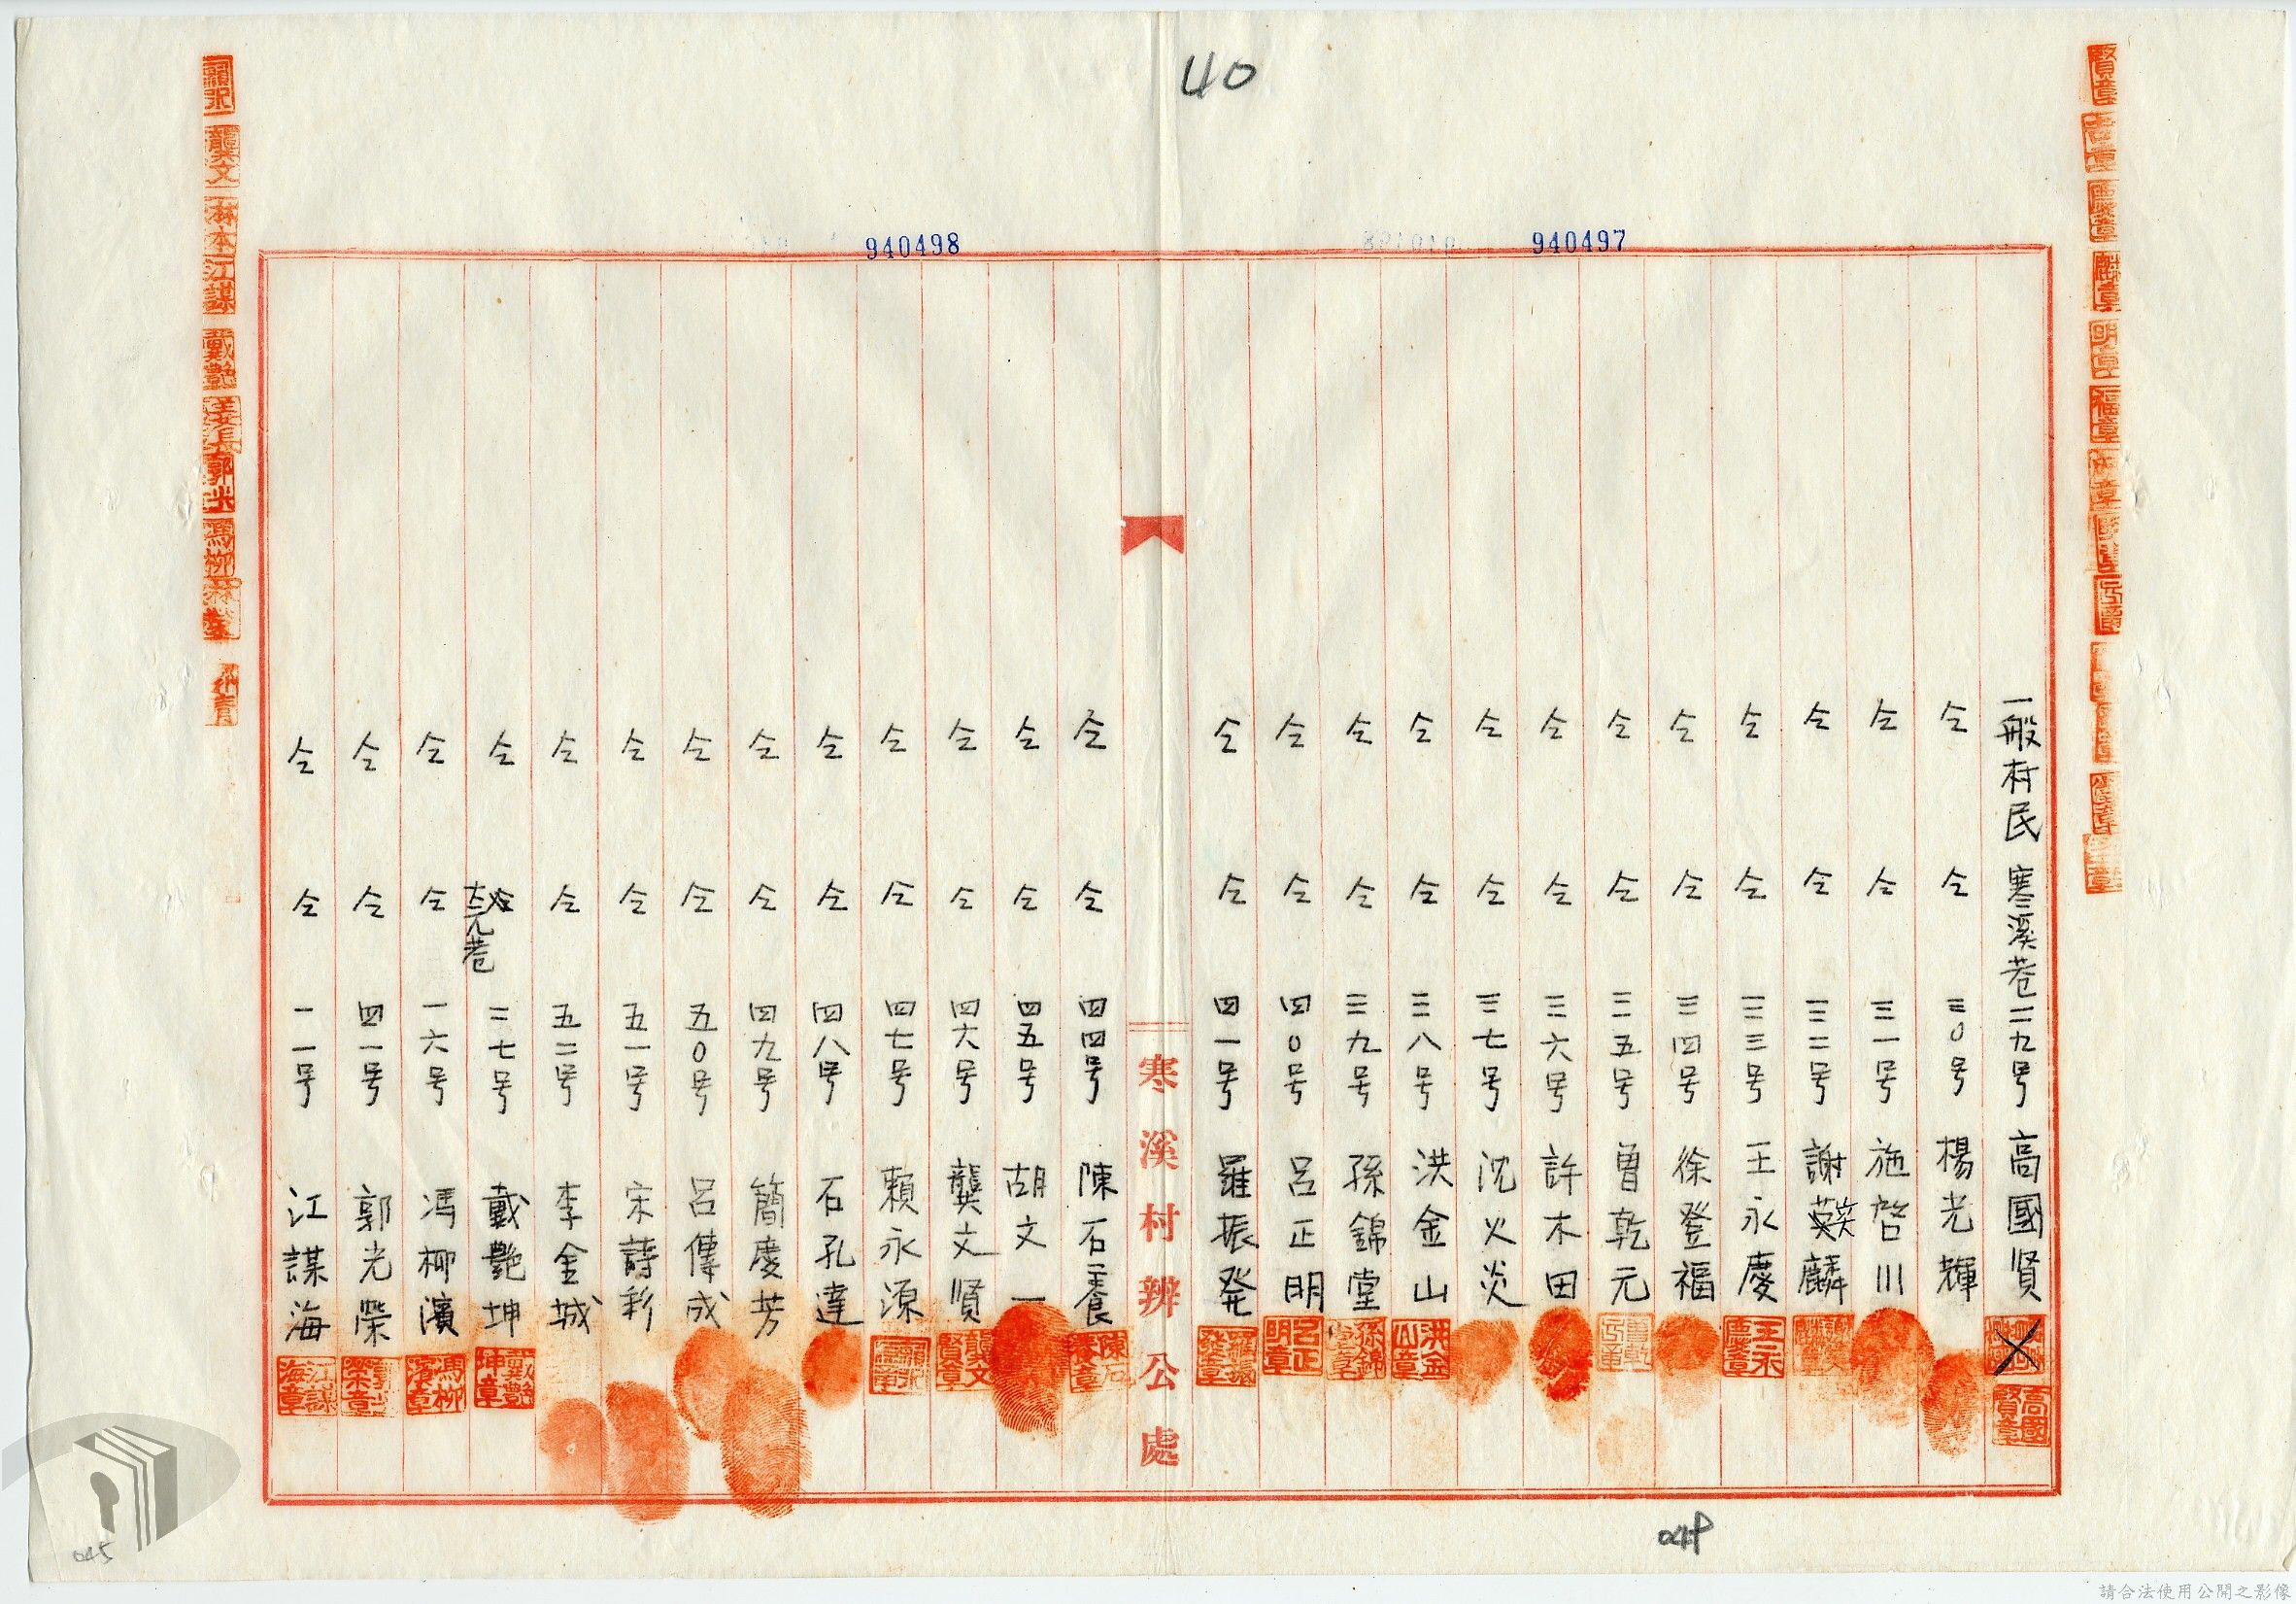 40
940497
940498
一般村民 寒溪巷二九号 高國賢
仝 仝 三〇号 楊光輝
仝 仝 三一号 施啓川
仝 仝 三二号 謝英麟
仝 仝 三三号 王永慶
仝 仝 三四号 徐登福
仝 仝 三五号 曾乾元
仝 仝 三六号 許木田
仝 仝 三七号 沈火炎
仝 仝 三八号 洪金山
仝 仝 三九号 孫錦堂
仝 仝 四〇号 呂正明
仝 仝 四一号 羅振発
寒溪村辦公處
仝 仝 四四号 陳石養
仝 仝 四五号 胡文一
仝 仝 四六号 龔文賢
仝 仝 四七号 賴永源
仝 仝 四八号 石孔達
仝 仝 四九号 簡慶芳
仝 仝 五〇号 呂傳成
仝 仝 五一号 宋詩彩
仝 仝 五二号 李金城
仝 巷 二七号 戴艷坤
仝 仝 一六号 馮柳濱
仝 仝 四一号 郭光榮
仝 仝 一一号 江謀海
高國賢章
王永慶章
洪金山章
孫錦堂章
呂正明章
羅振發章
陳石養章
龔文賢章
戴艷坤章
馮柳濱章
郭光榮章
江謀海章
045
請合法使用公開之影像